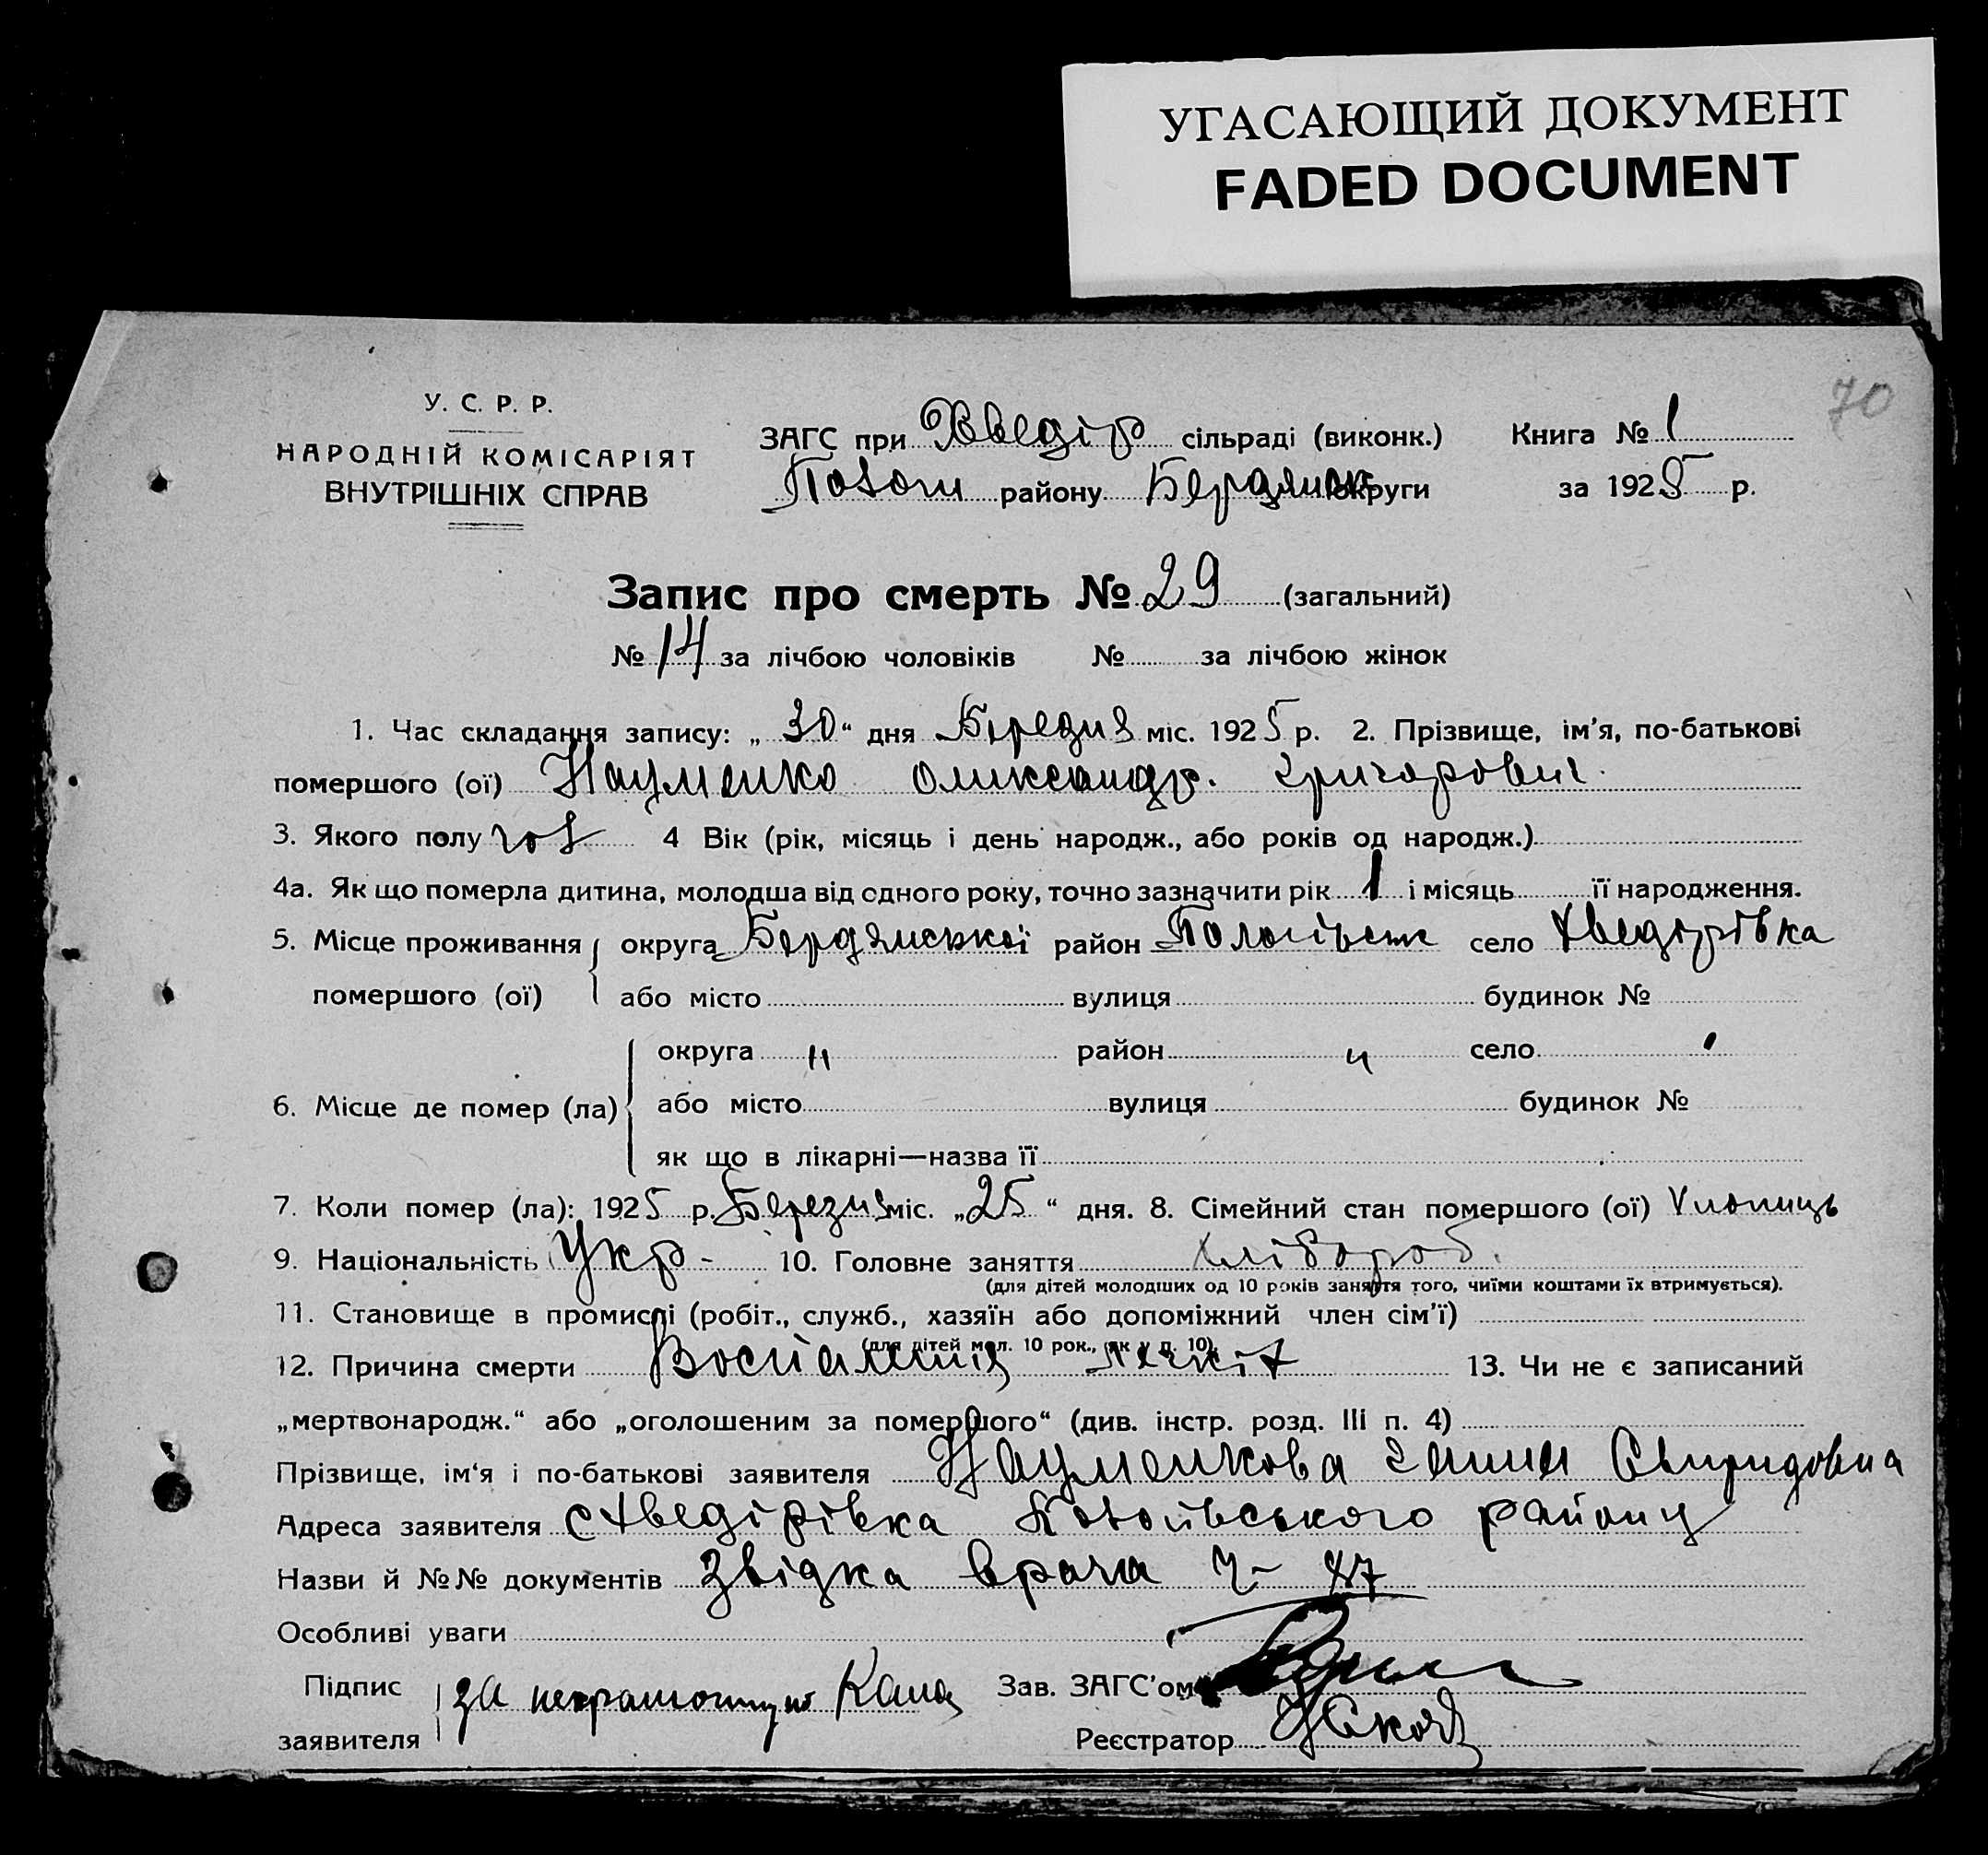 УГАСАЮЩИЙ ДОКУМЕНТ
FADED DOCUMENT
70
У. С. Р. Р.
НАРОДНІЙ КОМІСАРІЯТ
ВНУТРІШНІХ СПРАВ
ЗАГС при Хведір сільраді (виконк.) Книга № 1
Пологи району Бердянск округи за 1925 р.
Запис про смерть № 29 (загальний)
№ 14 за лічбою чоловіків № за лічбою жінок
1. Час складання запису: „ 30 “ дня міс. 1925 р. 2. Прізвище, ім'я, по-батькові
помершого (ої) Науменко Олександр. Григорович.
3. Якого полу чол 4 Вік (рік, місяць і день народж., або років од народж.)
4а. Як що померла дитина, молодша від одного року, точно зазначити рік 1 і місяць її народження.
5. Місце проживання округа Бердянської район село Хведірівка
помершого (ої) або місто вулиця будинок №
округа " район " село '
6. Місце де помер (ла) або місто вулиця будинок №
як що в лікарні—назва її
7. Коли помер (ла): 1925 р. Березня міс. „25“ дня. 8. Сімейний стан помершого (ої) Хлопиць
9. Національність Укр - 10. Головне заняття хлібороб.
(для дітей молодших од 10 років заняття того, чиїми коштами їх втримується).
11. Становище в промислі (робіт., служб., хазяїн або допоміжний член сім'ї)
(для дітей мол. 10 рок., як у п. 10).
12. Причина смерти Воспаления 13. Чи не є записаний
„мертвонародж.“ або „оголошеним за помершого“ (див. інстр. розд. III п. 4)
Прізвище, ім'я і по-батькові заявителя Науменкова Ганна Свиридовна
Адреса заявителя с Хведірівка Пологівського району
Назви й №№ документів Звідка врача ч-
Особливі уваги
Підпис за неграмотную Зав. ЗАГС'ом
заявителя Реєстратор